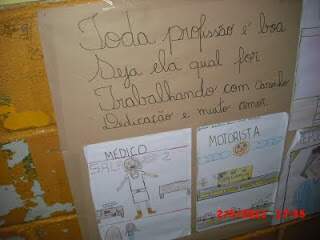 Toda profissão é boa
Seja ela qual for
Trabalhando com carinho
Dedicação e muito amor
MÉDICO
SALA 2
MOTORISTA